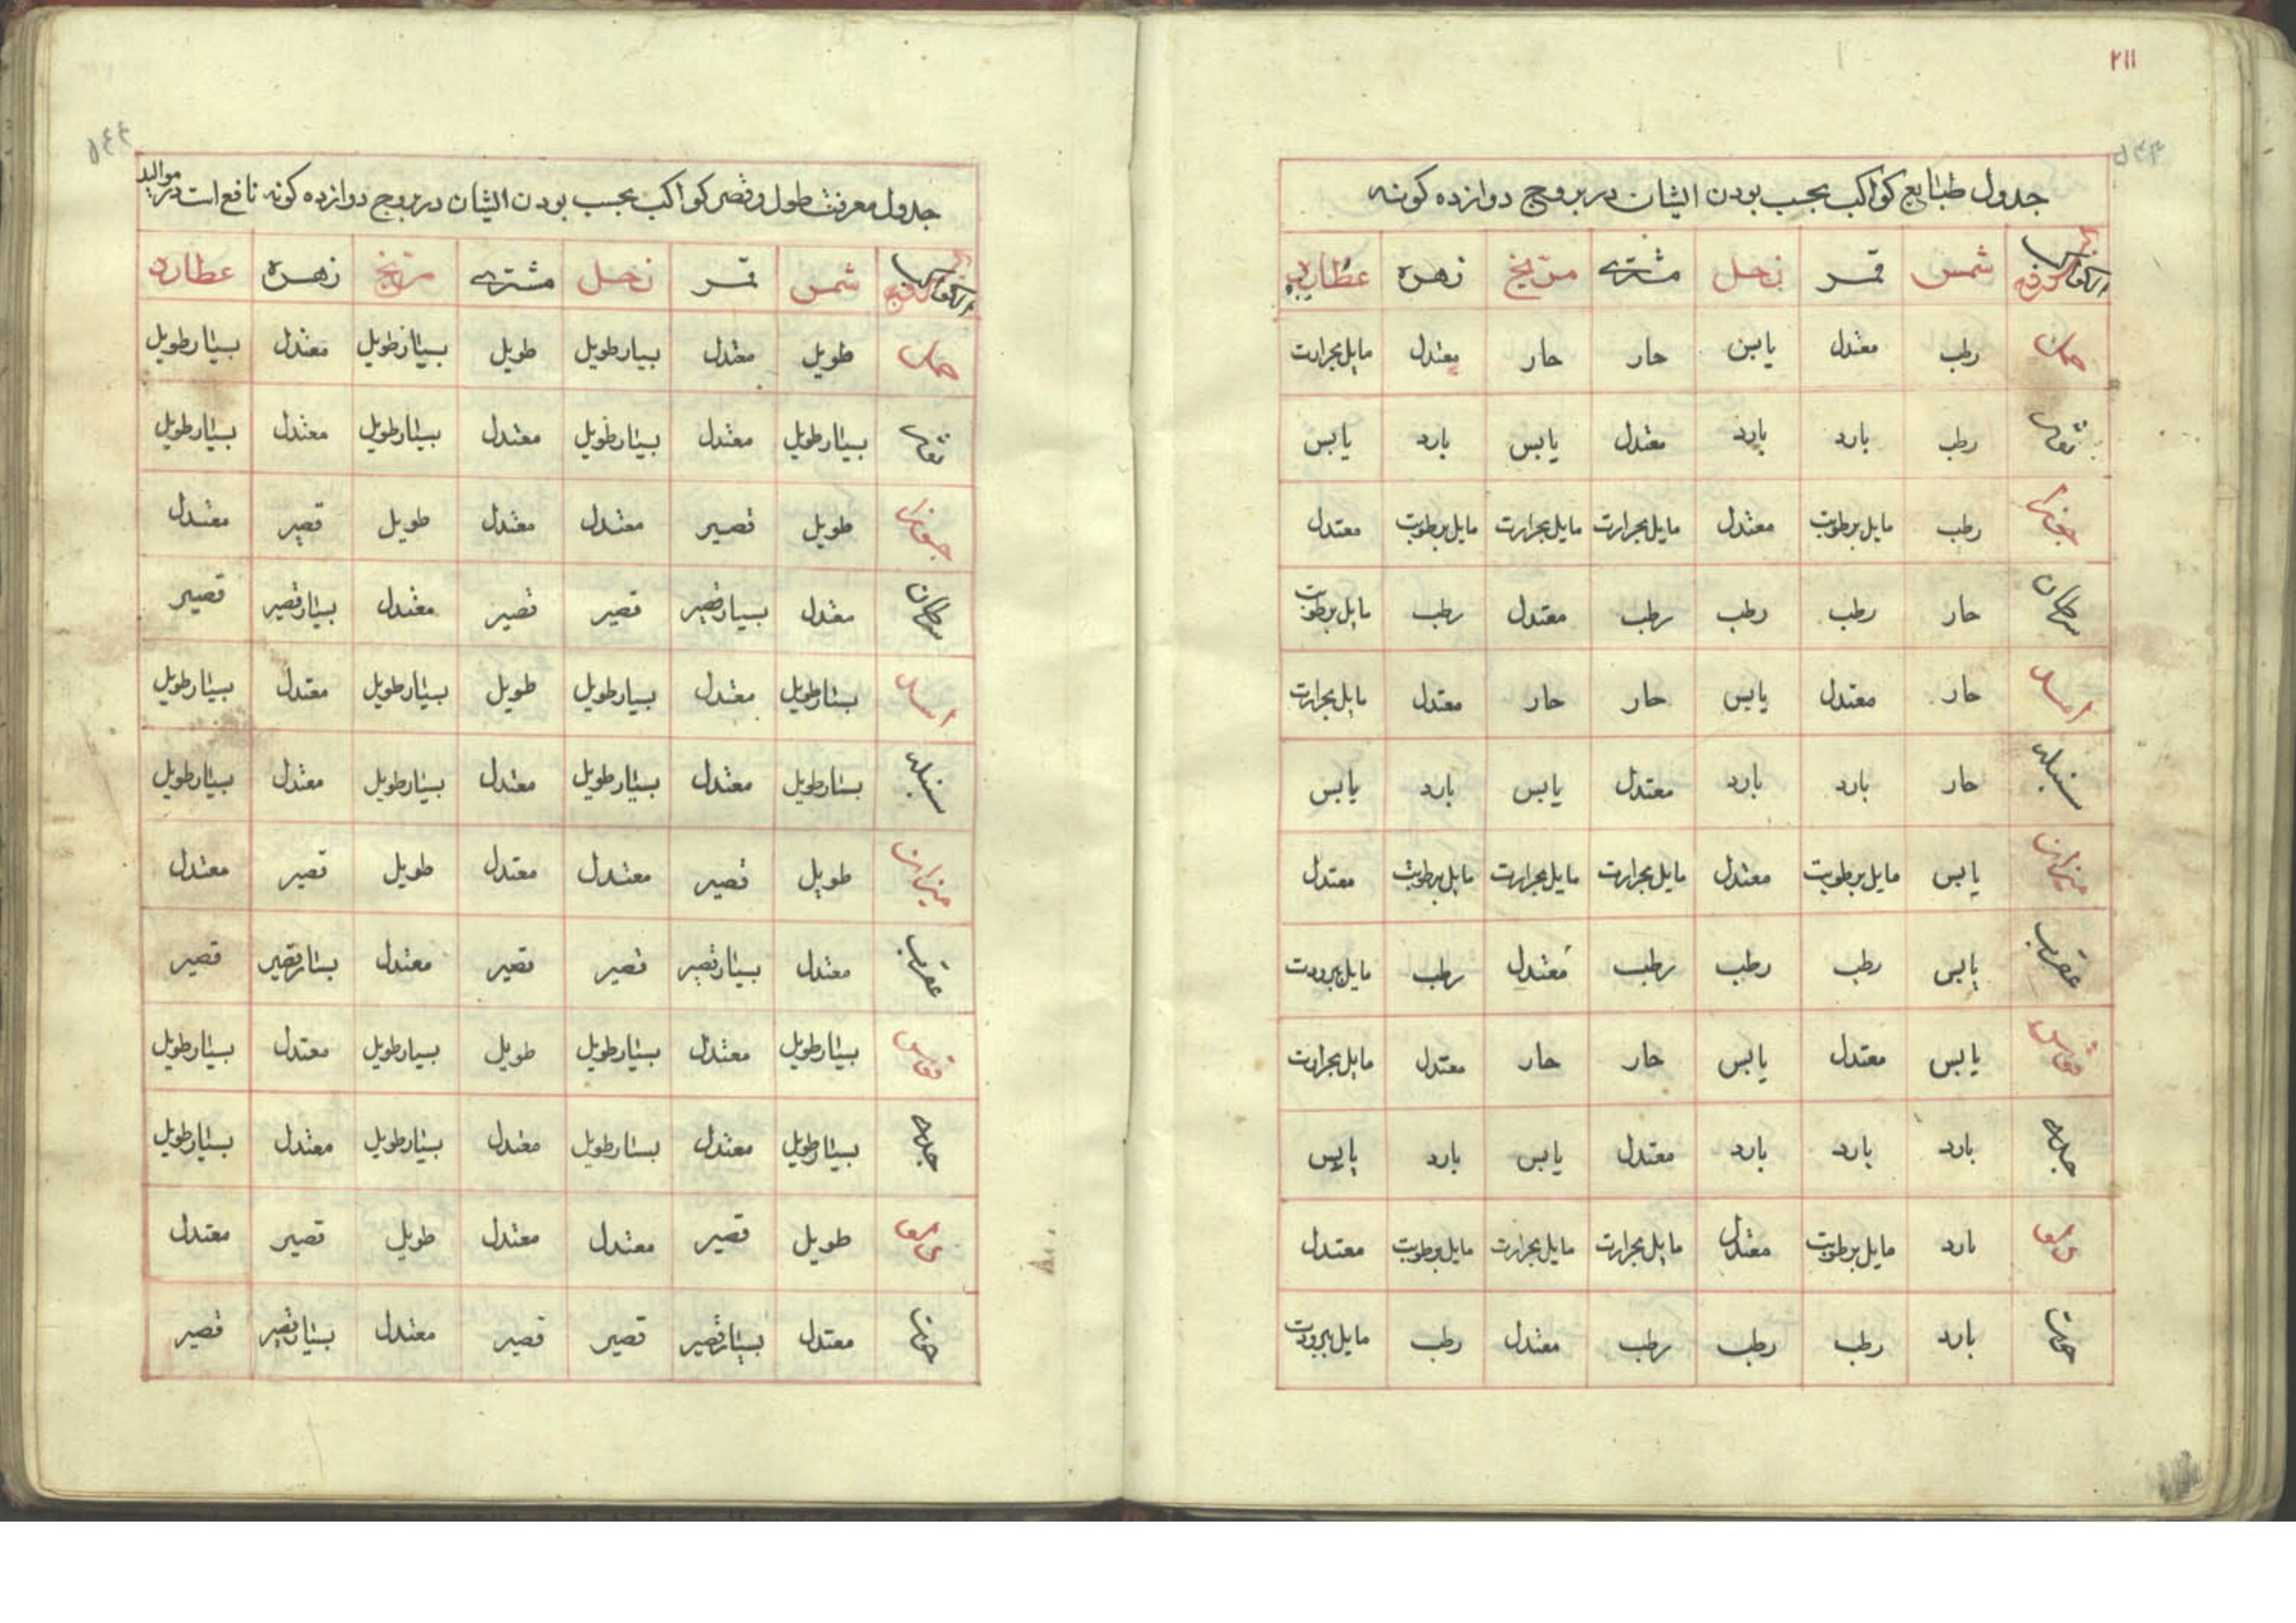 ۲۱۱
جدول طبایع کواکب بحسب بودن ایشان در بروج دوازده کونه
شمس قمر زحل مشتری مریخ زهره عطارد
حمل رطب معتدل یابس حار حار معتدل مایل بحرارت
ثور رطب بارد بارد معتدل یابس بارد یابس
جوزا رطب مایل برطوبت معتدل مایل بحرارت مایل بحرارت مایل برطوبت معتدل
سرطان حار رطب رطب رطب معتدل رطب مایل برطوبت
اسد حار معتدل یابس حار حار معتدل مایل بحرارت
سنبله حار بارد بارد معتدل یابس بارد یابس
میزان یابس مایل برطوبت معتدل مایل بحرارت مایل بحرارت مایل برطوبت معتدل
عقرب یابس رطب رطب رطب معتدل رطب مایل ببرودت
قوس یابس معتدل یابس حار حار معتدل مایل بحرارت
جدی بارد بارد بارد معتدل یابس بارد یابس
دلو بارد مایل برطوبت معتدل مایل بحرارت مایل بحرارت مایل برطوبت معتدل
حوت بارد رطب رطب رطب معتدل رطب مایل ببرودت
جدول معرفت طول و قصر کواکب بحسب بودن ایشان در بروج دوازده کونه نافع است در موالید
شمس قمر زحل مشتری مریخ زهره عطارد
حمل طویل معتدل بسیار طویل طویل بسیار طویل معتدل بسیار طویل
ثور بسیار طویل معتدل بسیار طویل معتدل بسیار طویل معتدل بسیار طویل
جوزا طویل قصیر معتدل معتدل طویل قصیر معتدل
سرطان معتدل بسیار قصیر قصیر قصیر معتدل بسیار قصیر قصیر
اسد بسیار طویل معتدل بسیار طویل طویل بسیار طویل معتدل بسیار طویل
سنبله بسیار طویل معتدل بسیار طویل معتدل بسیار طویل معتدل بسیار طویل
میزان طویل قصیر معتدل معتدل طویل قصیر معتدل
عقرب معتدل بسیار قصیر قصیر قصیر معتدل بسیار قصیر قصیر
قوس بسیار طویل معتدل بسیار طویل طویل بسیار طویل معتدل بسیار طویل
جدی بسیار طویل معتدل بسیار طویل معتدل بسیار طویل معتدل بسیار طویل
دلو طویل قصیر معتدل معتدل طویل قصیر معتدل
حوت معتدل بسیار قصیر قصیر قصیر معتدل بسیار قصیر قصیر